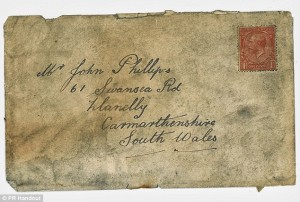 Mr John Phillips
61 Swansea Rd
Llanelly
Carmarthonshire
South Wales
© PR Handout